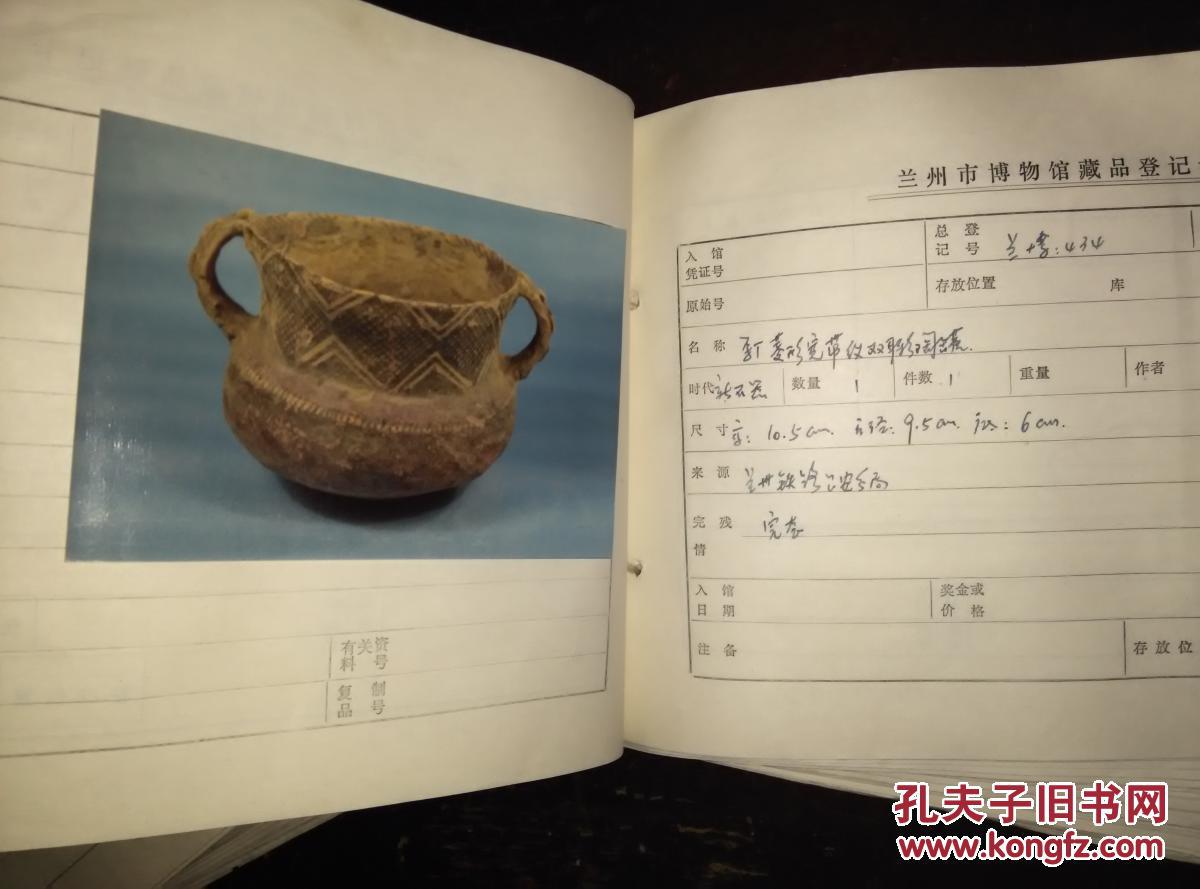 有关资
料号
复制
品号
兰州市博物馆藏品登记
入馆
凭证号
总登
记号 兰博:434
原始号
存放位置 库
名称 菱形宽带纹双耳彩陶罐
时代 新石器 数量 1 件数 1 重量 作者
尺寸 高: 10.5cm. 口径: 9.5cm. 底: 6cm.
来源 兰州铁路公安局
完残
情 完整
入馆
日期
奖金或
价格
注备
存放位
孔夫子旧书网
www.kongfz.com